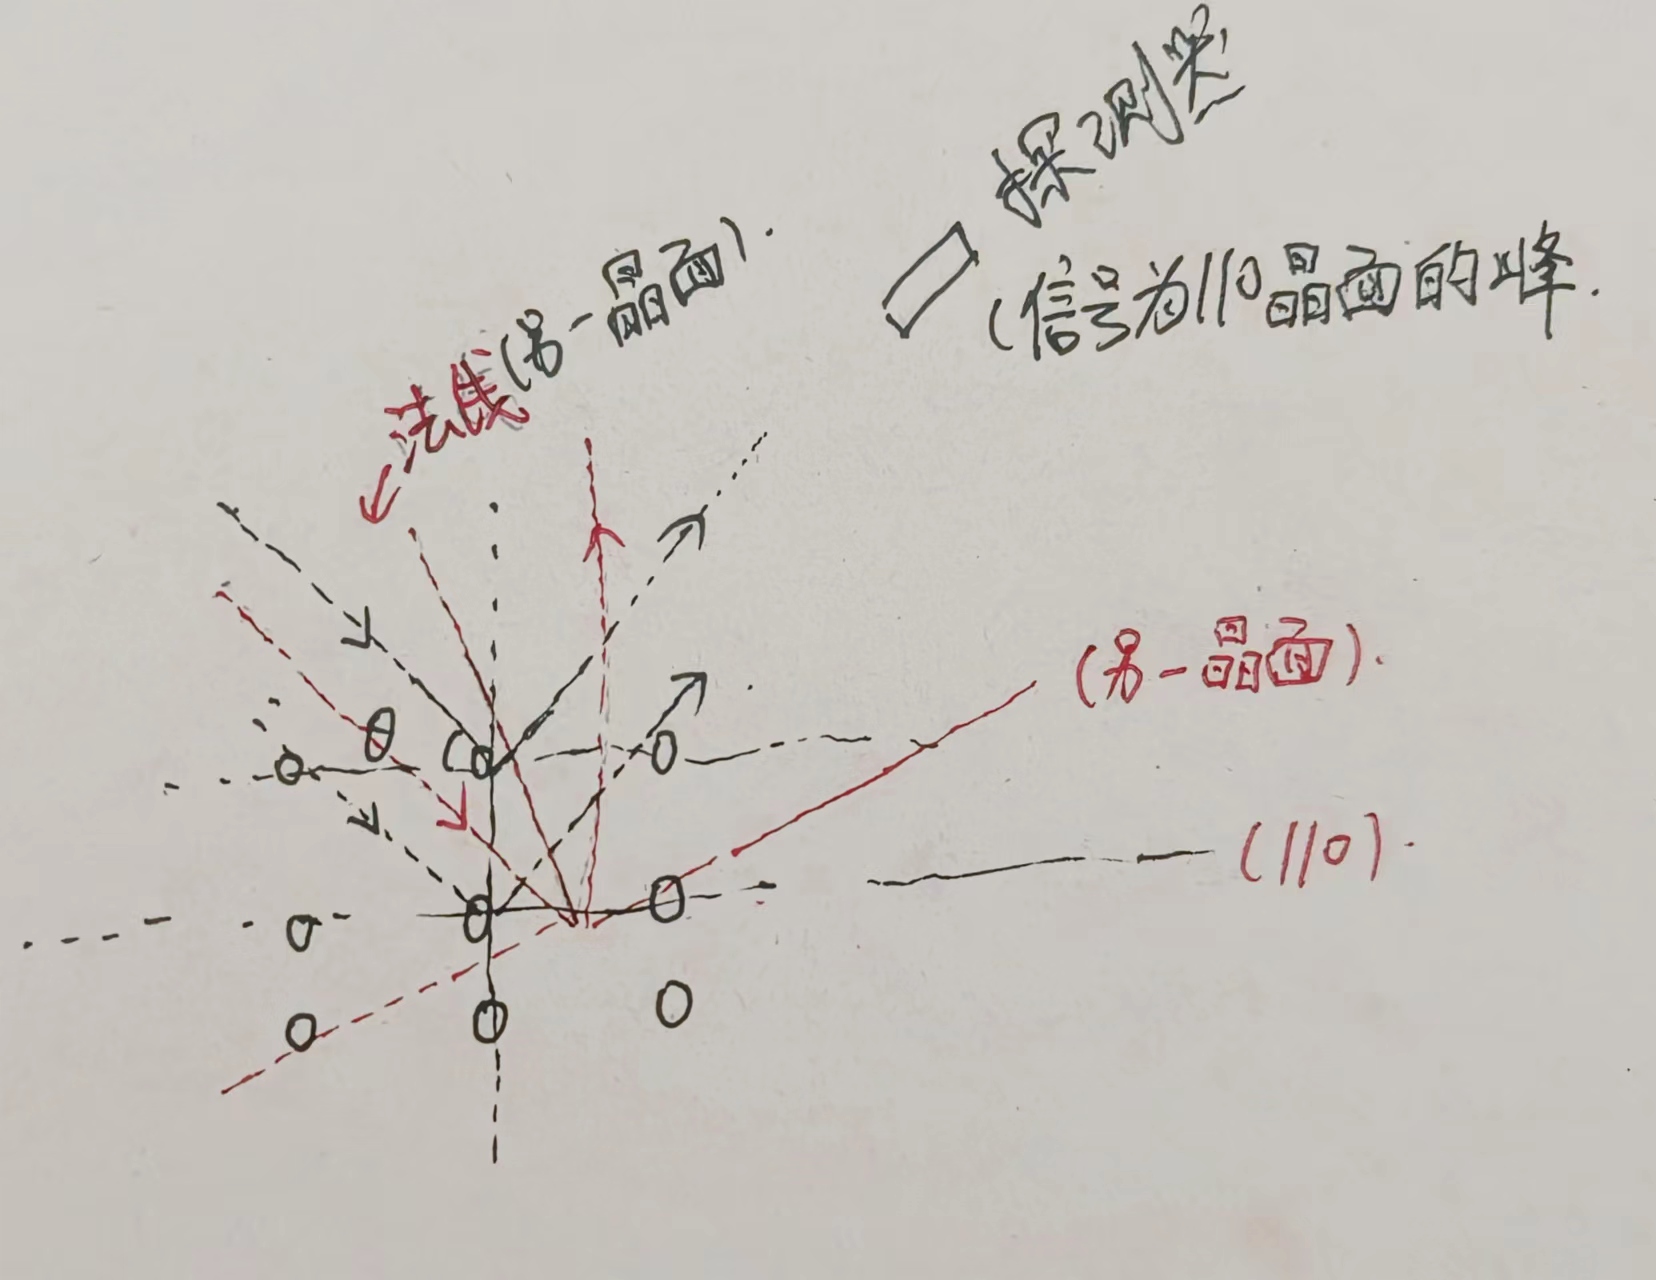 探测器
(信号为110晶面的峰.
法线(另一晶面).
(另一晶面).
θ
(110).